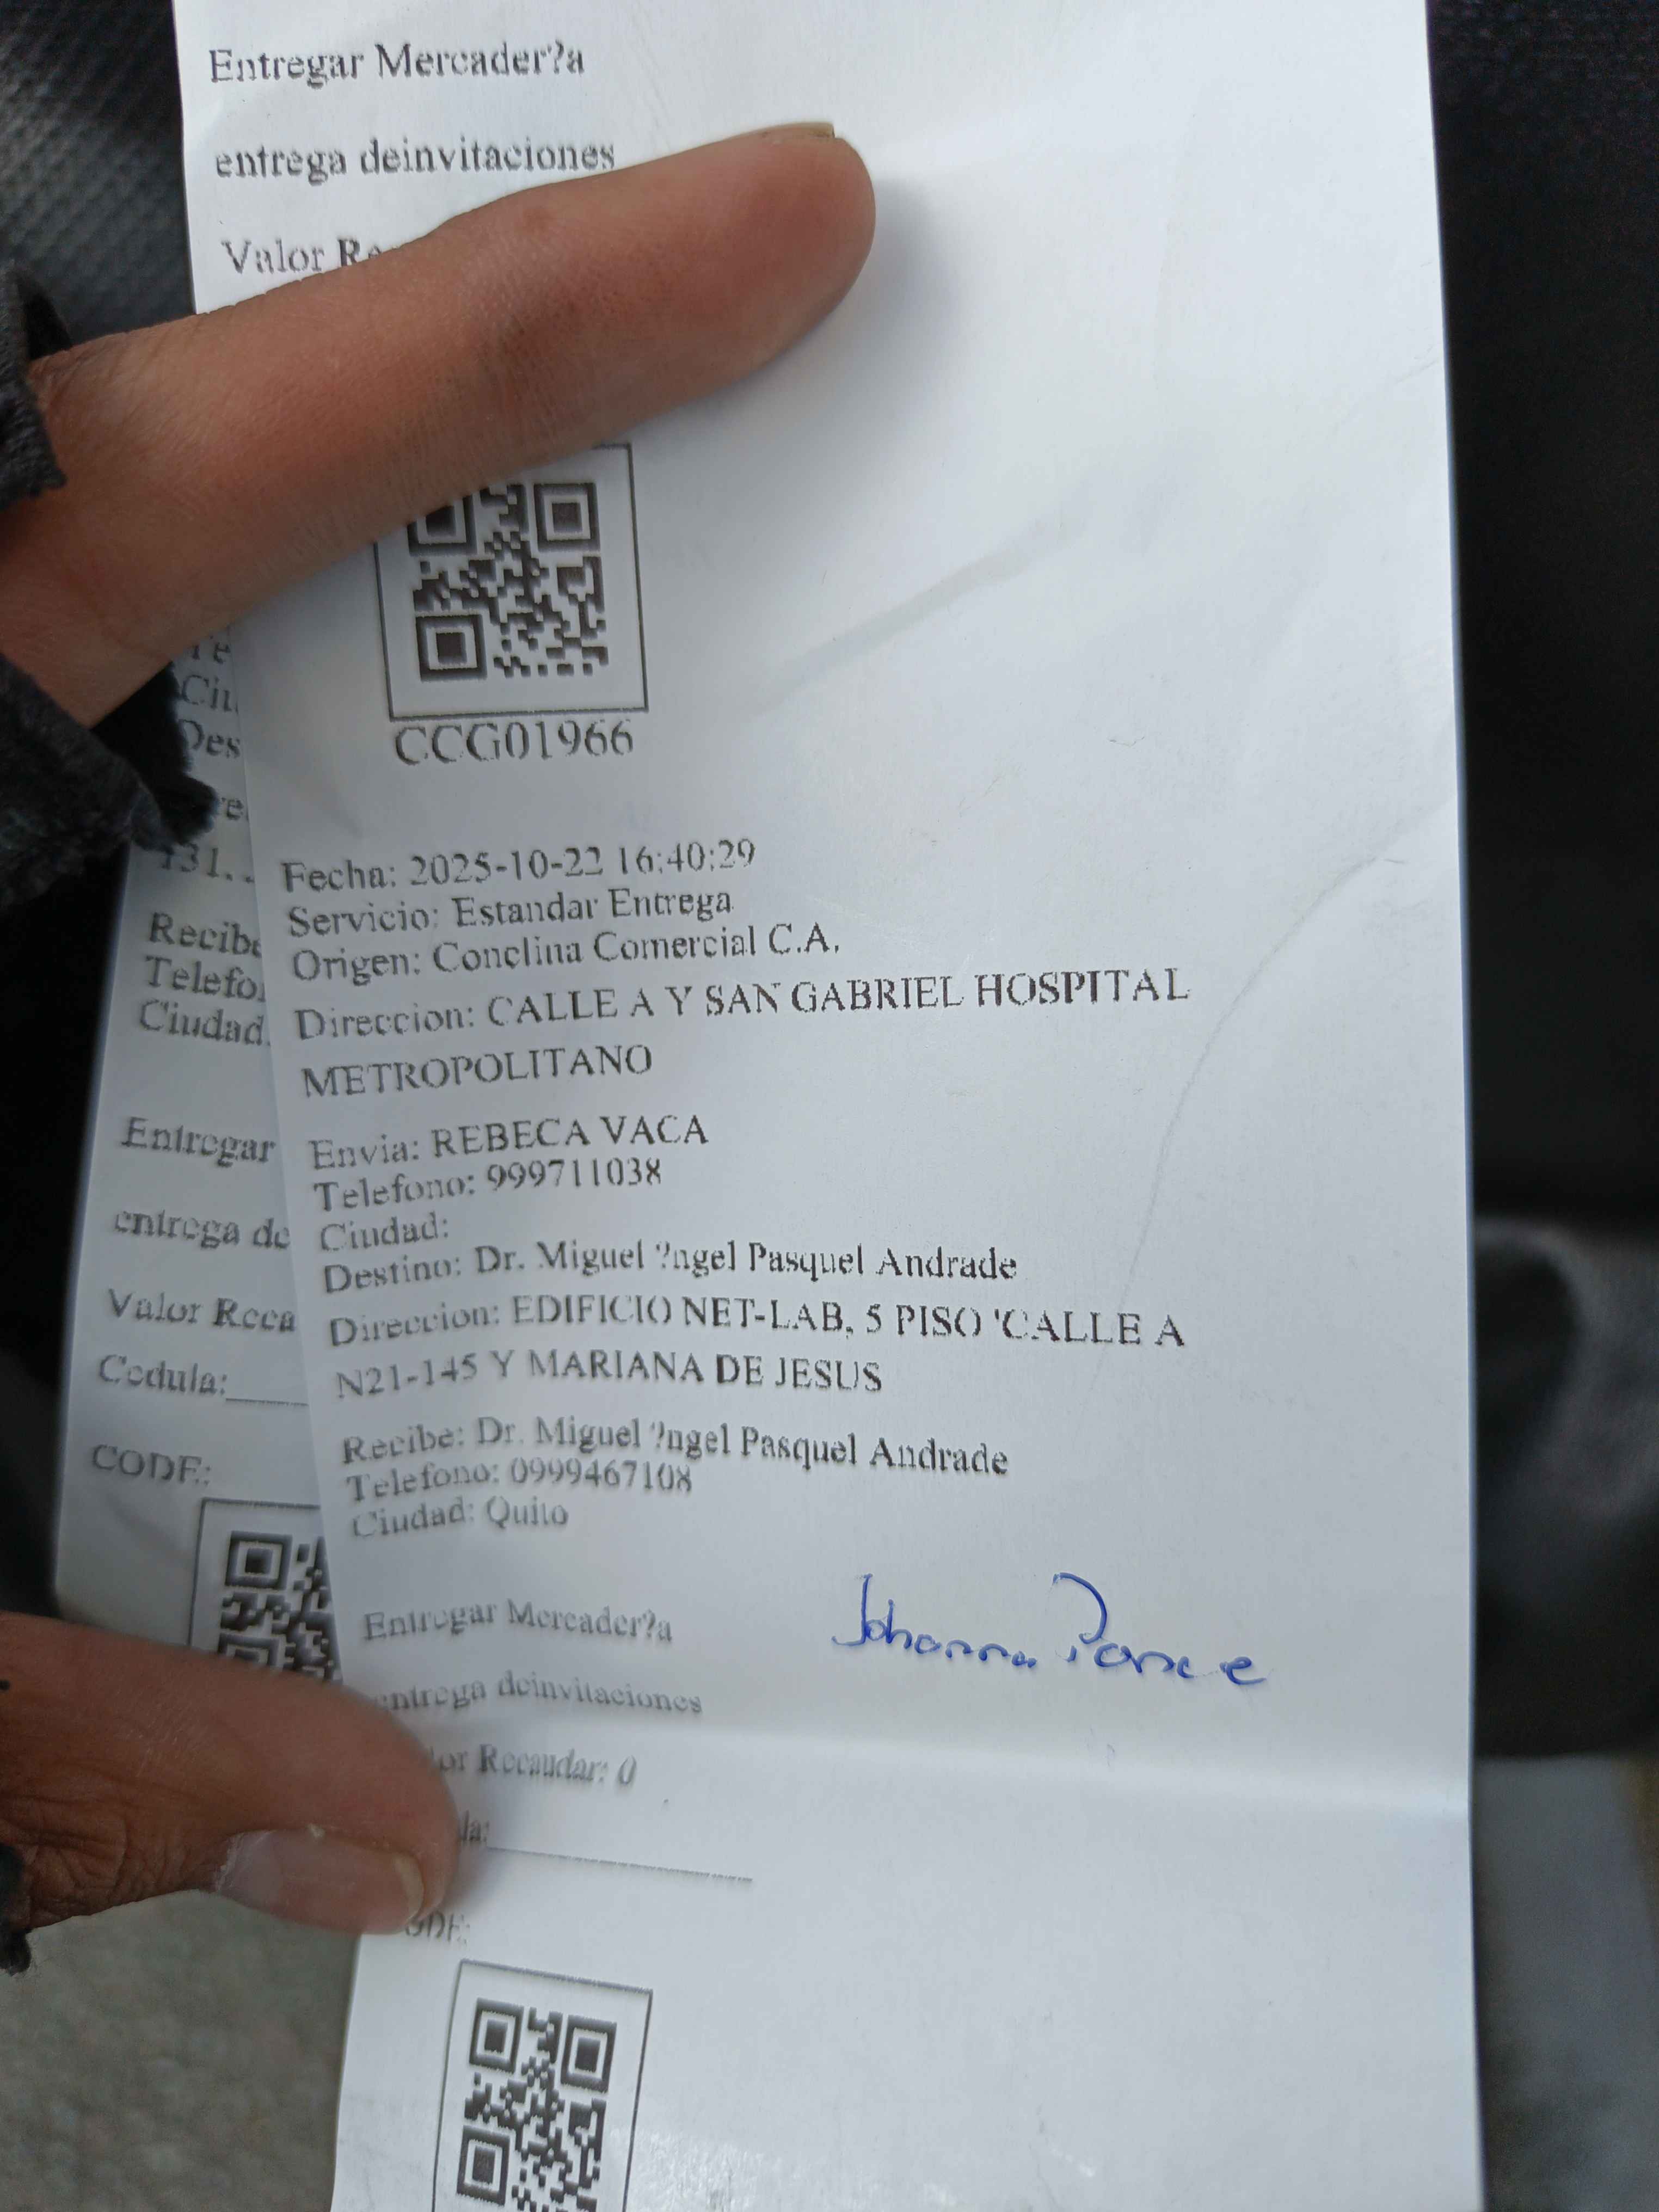 Entregar Mercader?a
entrega deinvitaciones
Valor
CCG01966
Fecha: 2025-10-22 16:40:29
Servicio: Estandar Entrega
Origen: Conclina Comercial C.A.
Direccion: CALLE A Y SAN GABRIEL HOSPITAL
METROPOLITANO
Envia: REBECA VACA
Telefono: 999711038
Ciudad:
Destino: Dr. Miguel ?ngel Pasquel Andrade
Direccion: EDIFICIO NET-LAB, 5 PISO 'CALLE A
N21-145 Y MARIANA DE JESUS
Recibe: Dr. Miguel ?ngel Pasquel Andrade
Telefono: 0999467108
Ciudad: Quito
Johanna Ponce
Entregar Mercader?a
entrega deinvitaciones
Recaudar: 0
Entregar
entrega de
Valor
Cedula:
CODE: